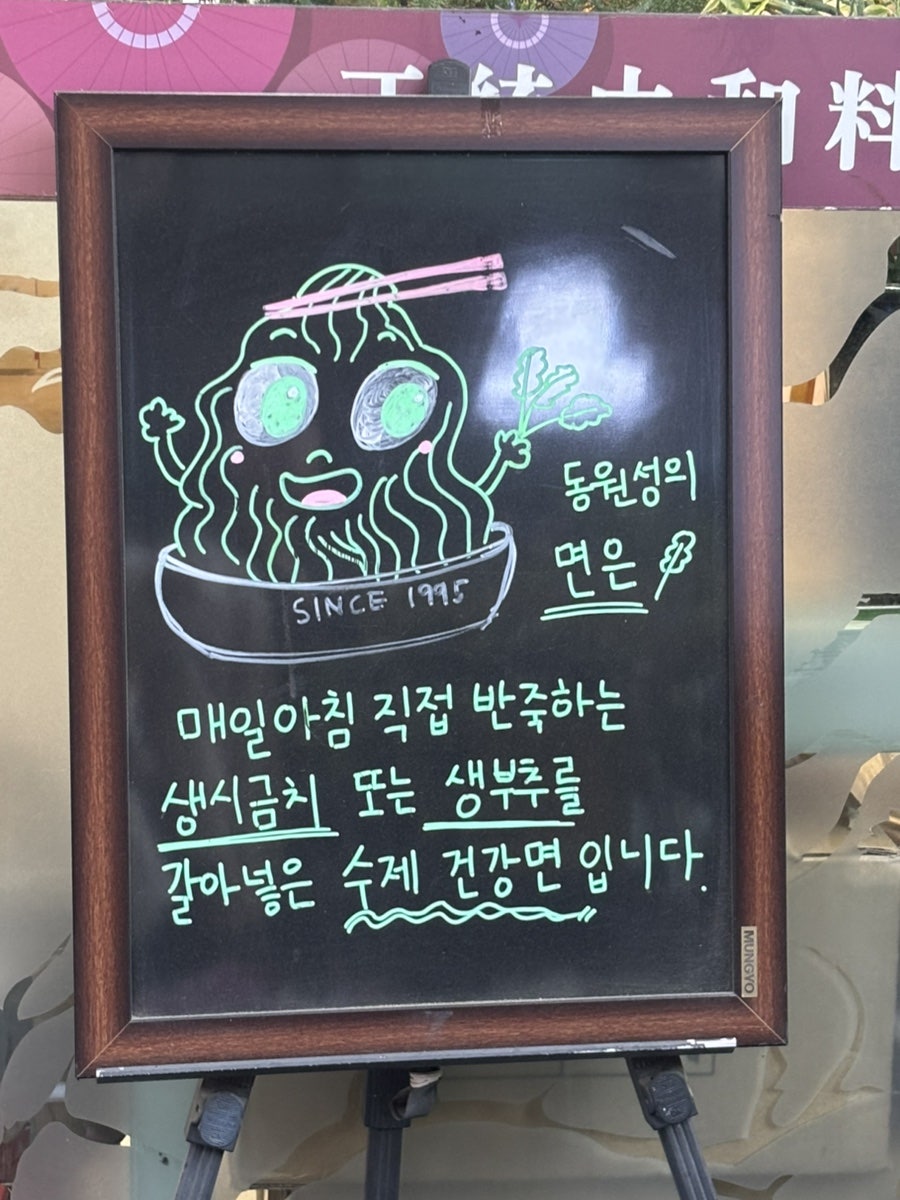 料
SINCE 1995
동원성의
면은
매일아침 직접 반죽하는
생시금치 또는 생부추를
갈아넣은 수제 건강면 입니다.
MUNGYO